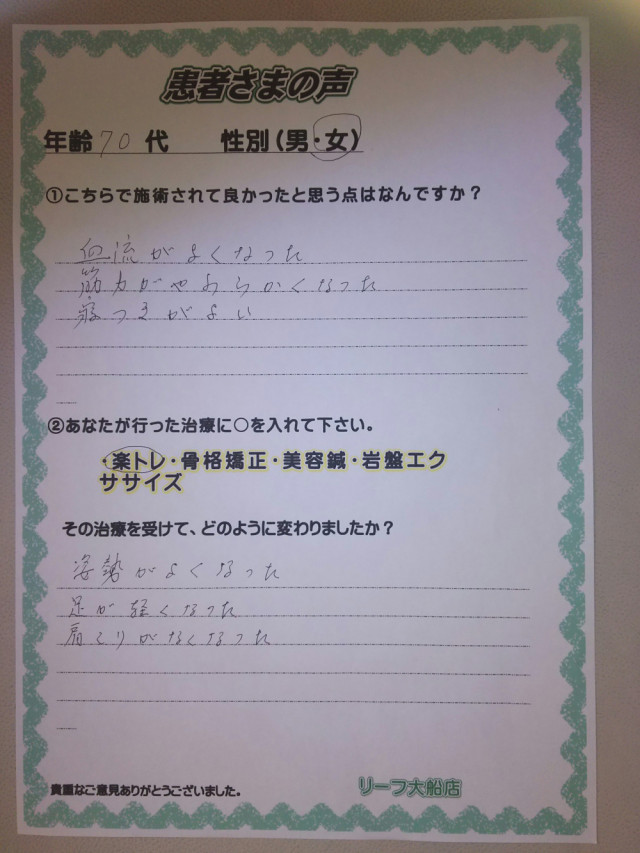 患者さまの声
年齢 70 代 性別(男・女)
①こちらで施術されて良かったと思う点はなんですか?
血流がよくなった
筋力がやわらかくなった
寝つきがよい
②あなたが行った治療に○を入れて下さい。
・楽トレ・骨格矯正・美容鍼・岩盤エク
ササイズ
その治療を受けて、どのように変わりましたか?
姿勢がよくなった
足が軽くなった
肩こりがなくなった
貴重なご意見ありがとうございました。
リーフ大船店